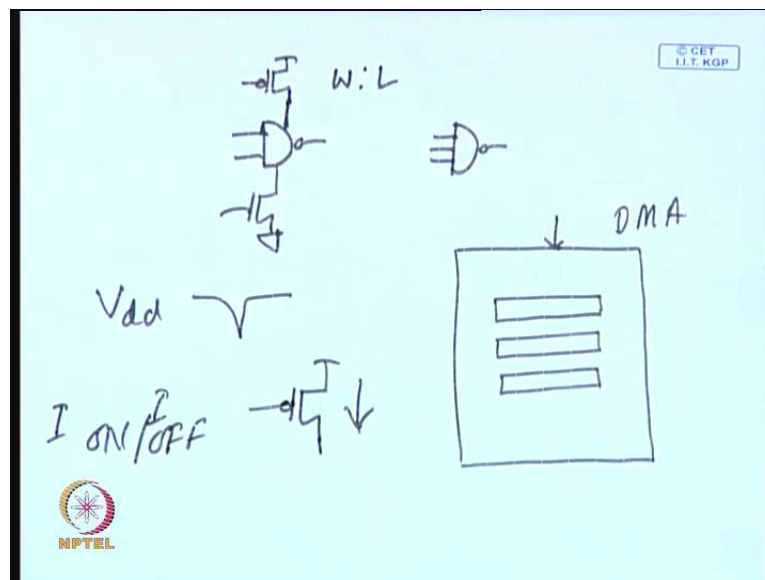 © CET
I.I.T. KGP
W:L
DMA
Vdd
I ON/I OFF
NPTEL